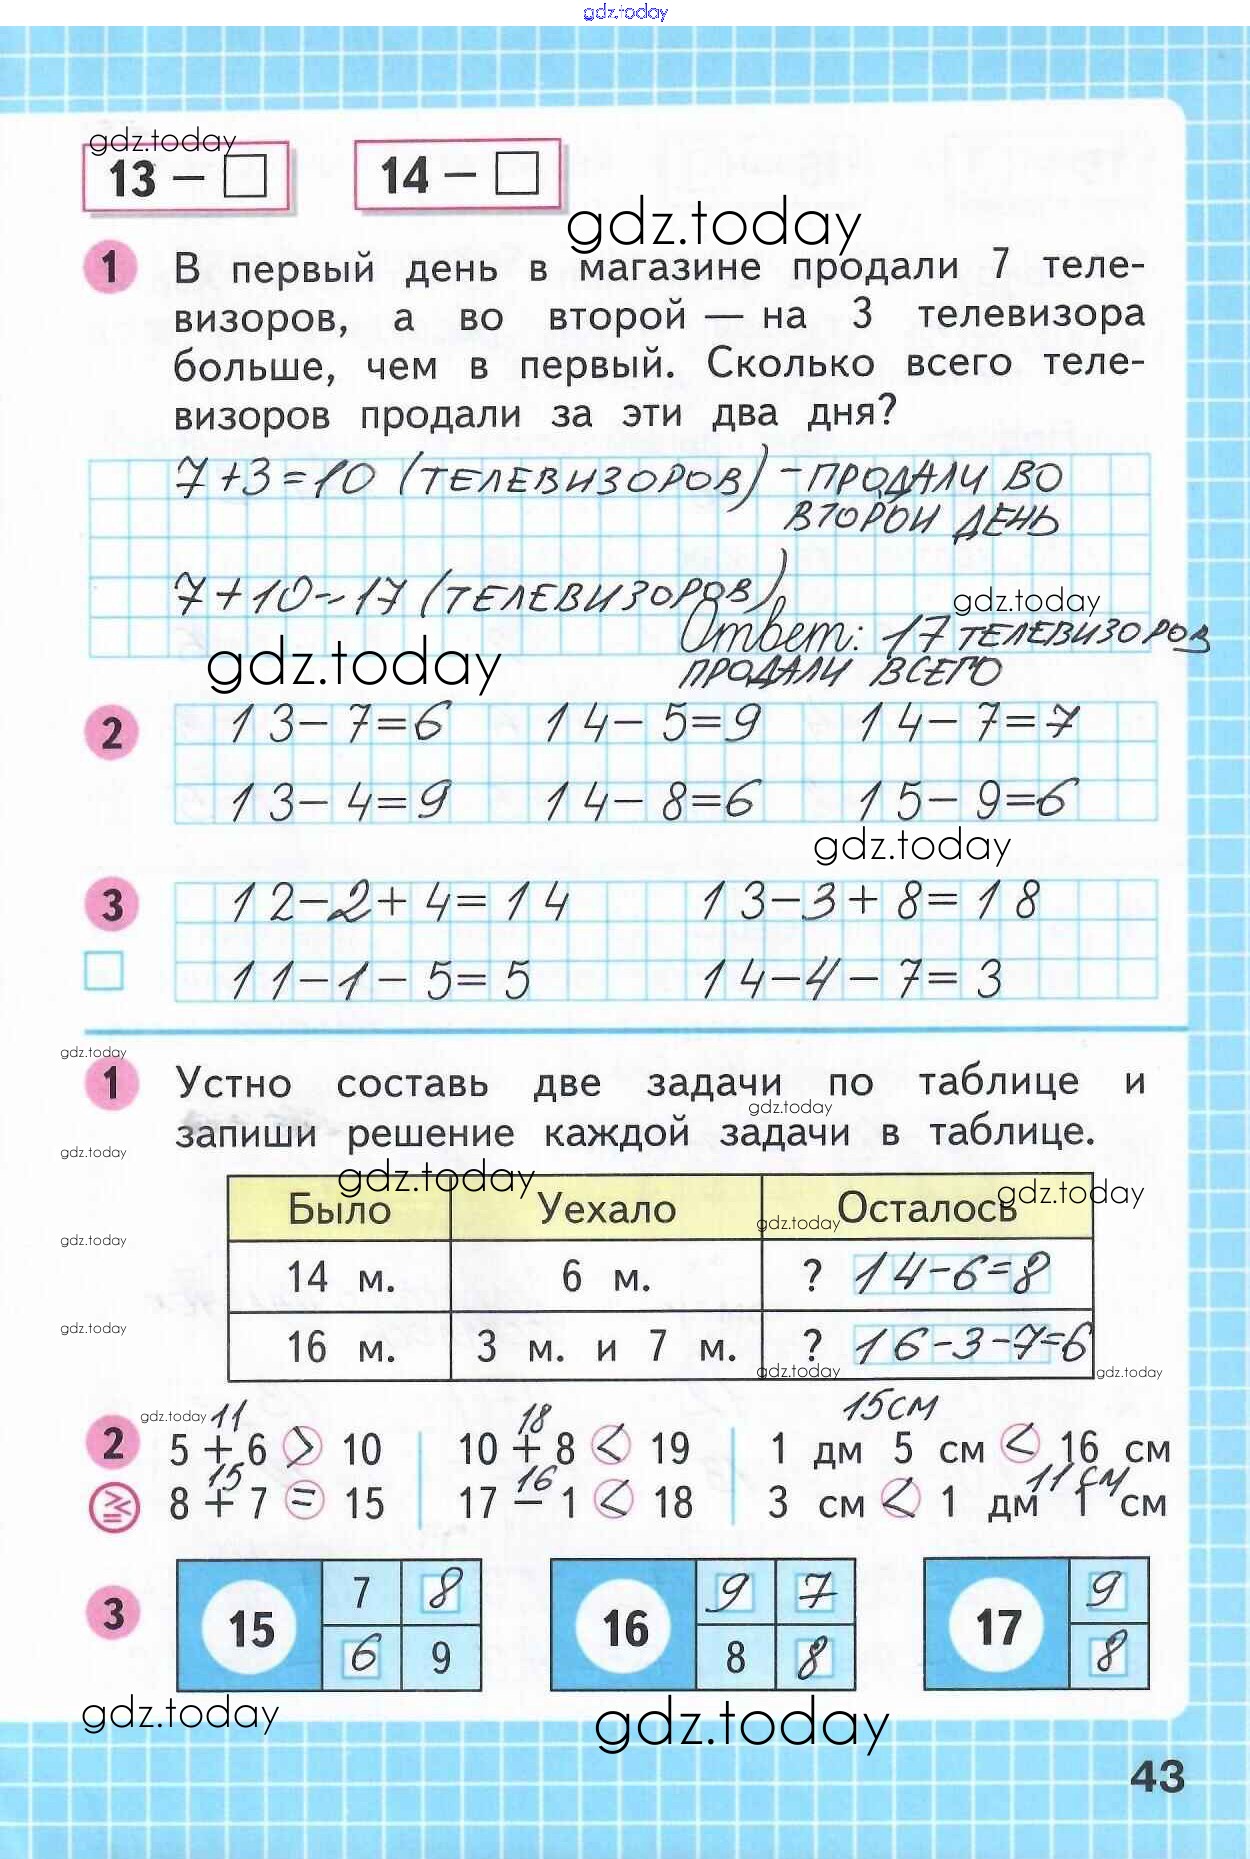 gdz.today
gdz.today
13 – □ 14 – □
gdz.today
1 В первый день в магазине продали 7 теле-
визоров, а во второй — на 3 телевизора
больше, чем в первый. Сколько всего теле-
визоров продали за эти два дня?
7+3=10 (ТЕЛЕВИЗОРОВ) – ПРОДАЛИ ВО
ВТОРОЙ ДЕНЬ
7+10=17 (ТЕЛЕВИЗОРОВ)
gdz.today
Ответ: 17 ТЕЛЕВИЗОРОВ
gdz.today
ПРОДАЛИ ВСЕГО
2 13–7=6 14–5=9 14–7=7
13–4=9 14–8=6 15–9=6
gdz.today
3 12–2+4=14 13–3+8=18
11–1–5=5 14–4–7=3
gdz.today
1 Устно составь две задачи по таблице и
gdz.today
запиши решение каждой задачи в таблице.
gdz.today
gdz.today
gdz.today
Было Уехало Осталось
gdz.today
gdz.today
14 м. 6 м. ? 14–6=8
gdz.today
16 м. 3 м. и 7 м. ? 16–3–7=6
gdz.today
gdz.today
gdz.today
11 18 15см
2 5 + 6 > 10 10 + 8 < 19 1 дм 5 см < 16 см
15 16 11см
8 + 7 = 15 17 – 1 < 18 3 см < 1 дм 1 см
3 15 7 8 16 9 7 17 9
6 9 8 8 8
gdz.today
gdz.today
43